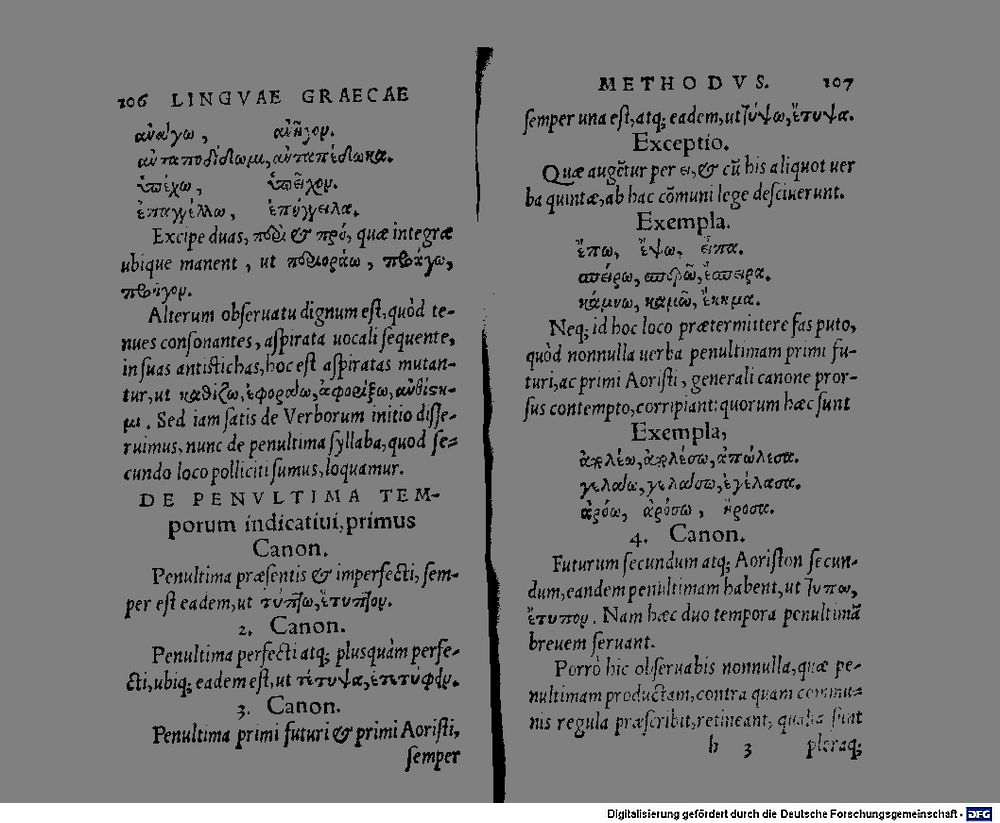 106 LINGVAE GRAECAE
ἀνάγω, ἀνῆγον.
ἀνταποδίδωμι, ἀνταπέδωκα.
ὑπέχω, ὑπεῖχον.
ἐπαγγέλλω,
Excipe duas, περὶ & πρό, quæ integræ
ubique manent, ut περιοράω, προάγω,
προῆγον.
Alterum obseruatu dignum est, quòd te-
nues consonantes, aspirata uocali sequente,
in suas antistichas, hoc est aspiratas mutan-
tur, ut καθίζω, ἐφοράω,
μι. Sed iam satis de Verborum initio disse-
ruimus, nunc de penultima syllaba, quod se-
cundo loco polliciti sumus, loquamur.
DE PENVLTIMA TEM-
porum indicatiui, primus
Canon.
Penultima præsentis & imperfecti, sem-
per est eadem, ut τύπτω, ἔτυπτον.
2. Canon.
Penultima perfecti atq; plusquàm perfe-
cti, ubiq; eadem est, ut
3. Canon.
Penultima primi futuri & primi Aoristi,
semper
METHODVS. 107
semper una est, atq; eadem, ut τύψω, ἔτυψα.
Exceptio.
Quæ augẽtur per ει, & cũ his aliquot uer
ba quintæ, ab hac cõmuni lege desciuerunt.
Exempla.
ἔπω, ἔψω, εἶπα.
σπείρω, σπερῶ, ἔσπειρα.
κάμνω, καμῶ, ἔκημα.
Neq; id hoc loco prætermittere fas puto,
quòd nonnulla uerba penultimam primi fu-
turi, ac primi Aoristi, generali canone pror-
sus contempto, corripiant: quorum hæc sunt
Exempla,
γελάω, γελάσω, ἐγέλασα.
ἀρόω, ἀρόσω, ἤροσα.
4. Canon.
Futurum secundum atq; Aoriston secun-
dum, eandem penultimam habent, ut τυπῶ,
ἔτυπον. Nam hæc duo tempora penultimã
breuem seruant.
Porrò hic obseruabis nonnulla, quæ pe-
nultimam productam, contra quam commu-
nis regula præscribit, retineant, qualia sunt
h 3 pleraq;
Digitalisierung gefördert durch die Deutsche Forschungsgemeinschaft - DFG